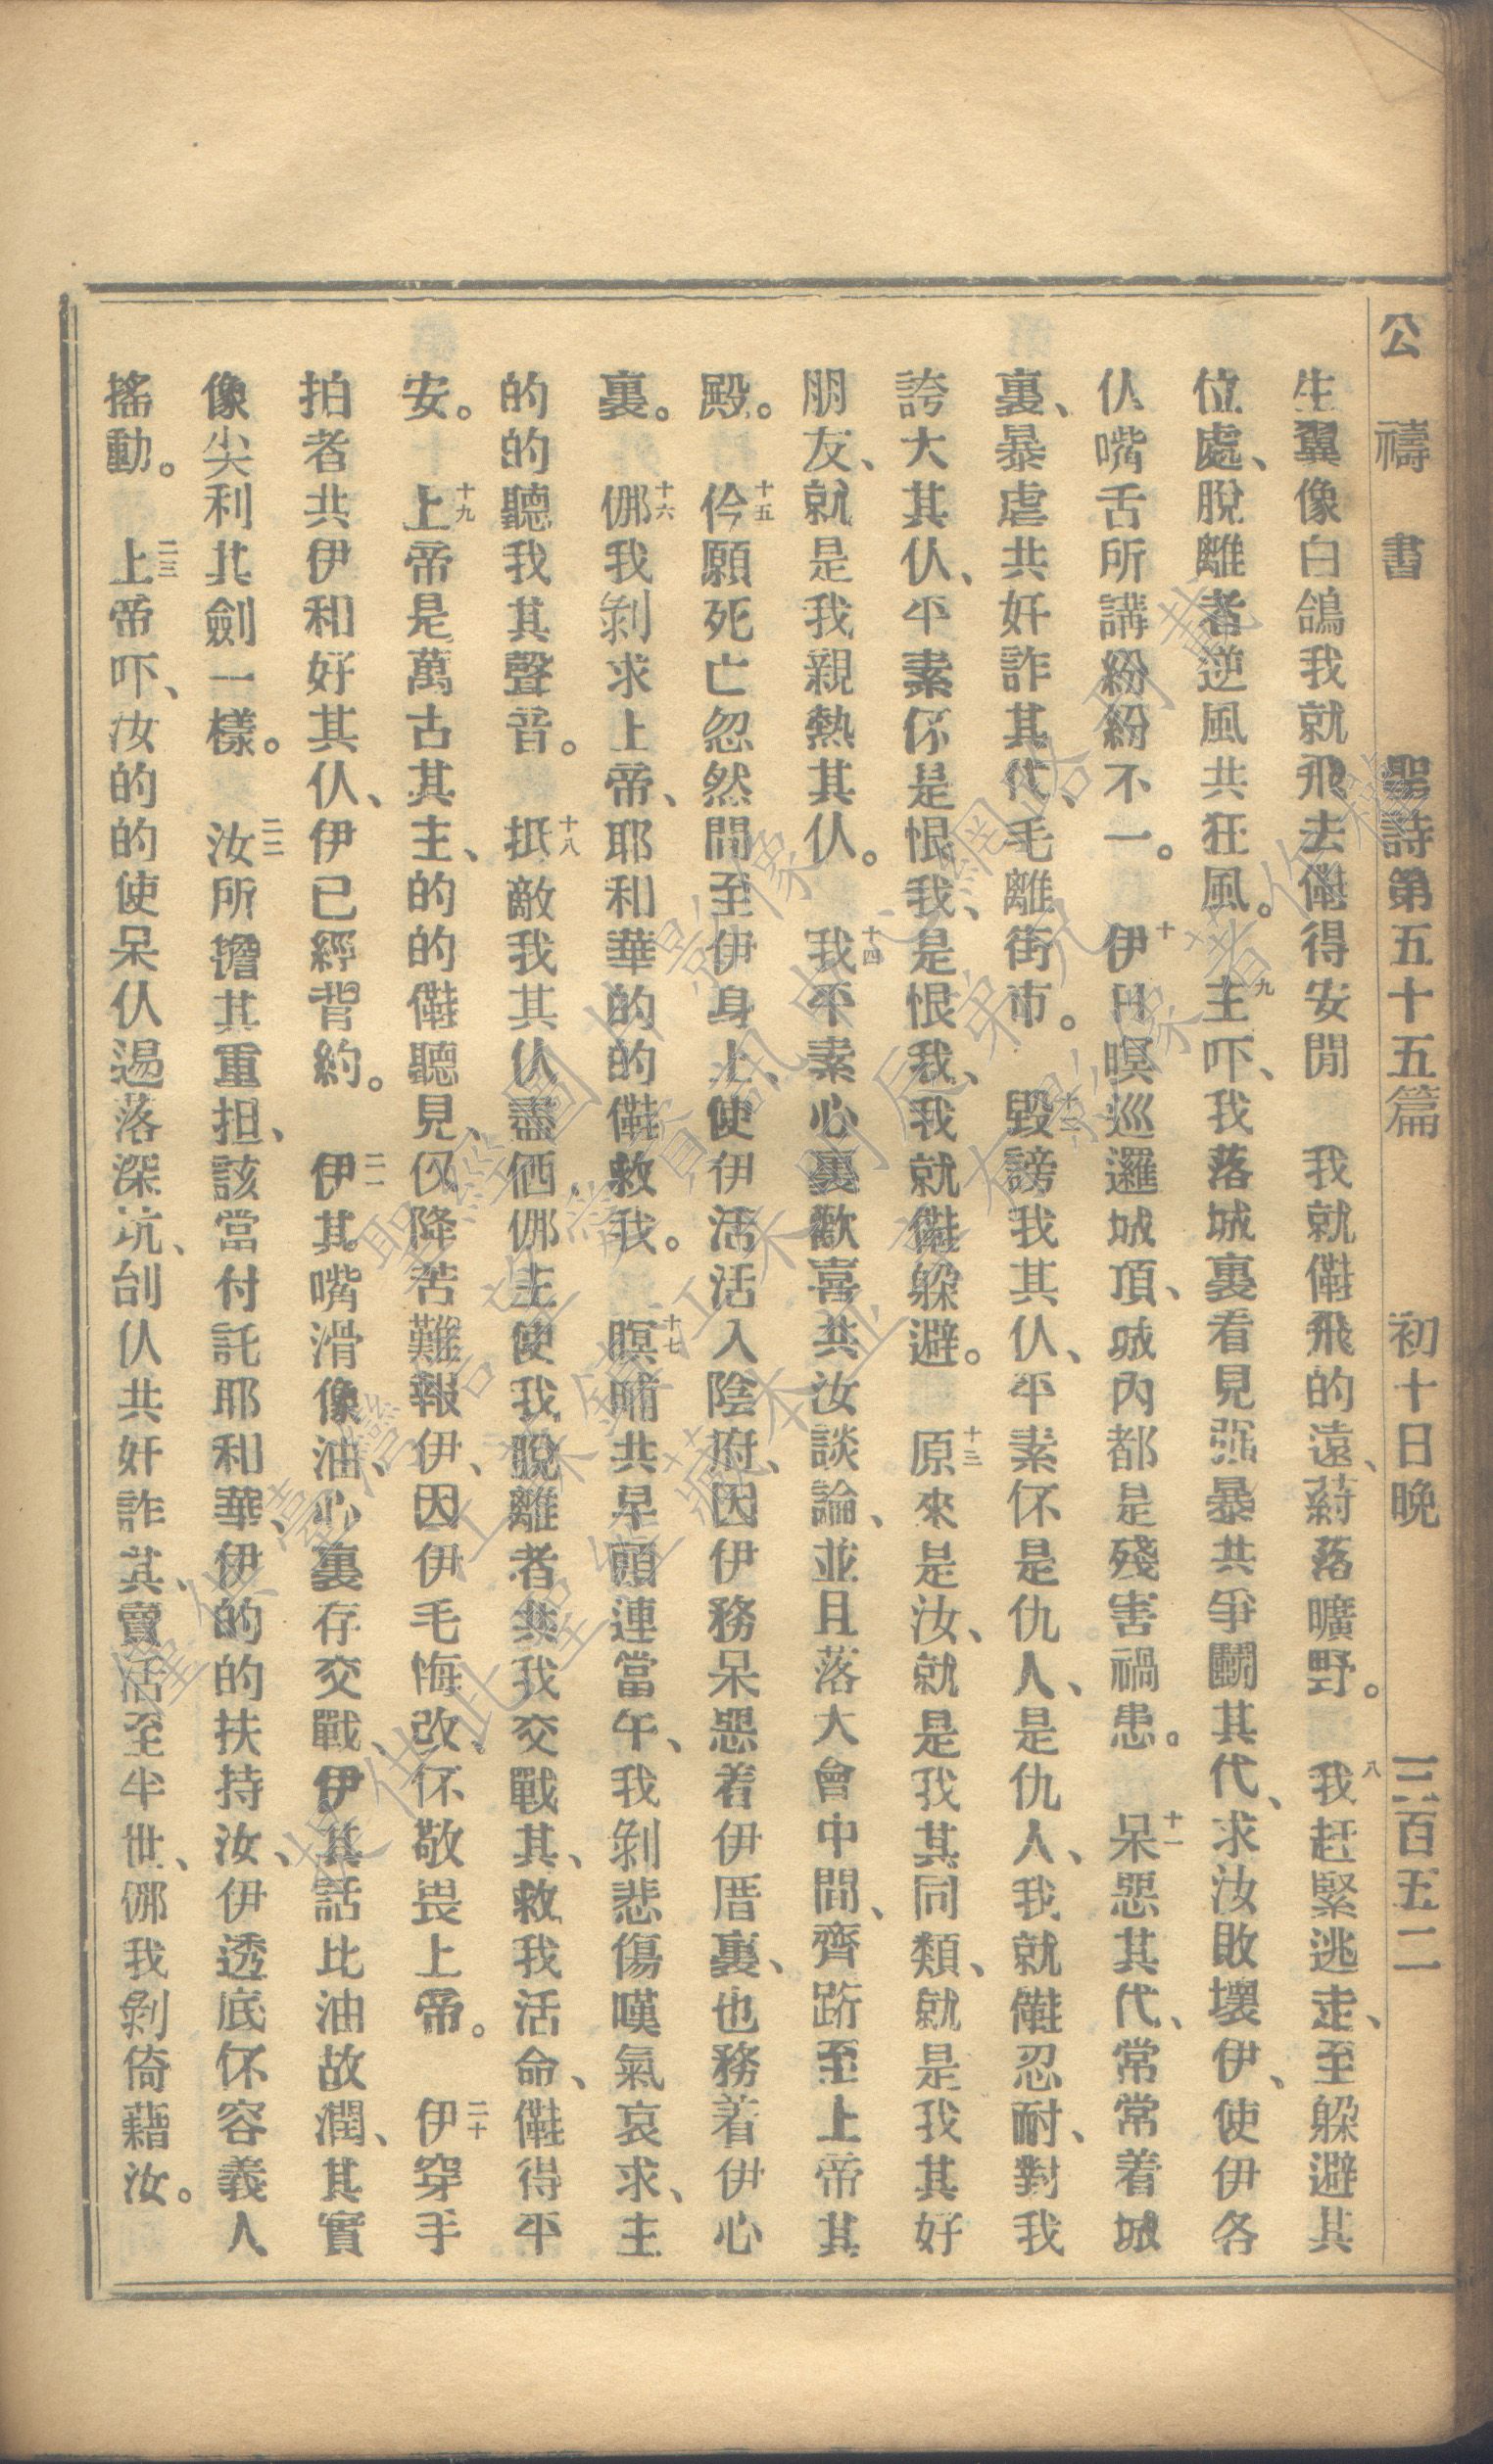 公禱書 聖詩第五十五篇 初十日晚 三百五二
生翼像白鴿我就飛去㑚得安閒 我就㑚飛的遠、䔭落曠野。八我赶緊逃走、至躱避其
位處、脫離者逆風共狂風。九主吓、我落城裏看見强暴共爭鬬其代、求汝敗壞伊、使伊各
仈嘴舌所講紛紛不一。十伊日暝巡邏城頂、城內都是殘害禍患。十一呆惡其代、常常着城
裏、暴虐共奸詐其代、毛離街市。十二毀謗我其仈、平素伓是仇人、是仇人、我就㑚忍耐、對我
誇大其仈、平素伓是恨我、是恨我、我就㑚躱避。十三原來是汝、就是我其同類、就是我其好
朋友、就是我親熱其仈。十四我平素心裏歡喜共汝談論、並且落大會中間、齊跕至上帝其
殿。十五伶願死亡忽然間至伊身上、使伊活活入陰府、因伊務呆惡着伊厝裏、也務着伊心
裏。十六㑚我剝求上帝、耶和華的的㑚救我。十七暝晡共早頭連當午、我剝悲傷嘆氣哀求、主
的的聽我其聲音。十八抵敵我其仈盡㑚、㑚主使我脫離者共我交戰其、救我活命、㑚得平
安。十九上帝是萬古其主、的的㑚聽見、仅降苦難報伊、因伊毛悔改、伓敬畏上帝。二十伊穿手
拍者共伊和好其仈、伊已經背約。二一伊其嘴滑像油、心裏存交戰、伊其話比油故潤、其實
像尖利其劍一樣。二二汝所擔其重担、該當付託耶和華、伊的的扶持汝、伊透底伓容義人
搖動。二三上帝吓、汝的的使呆仈逿落深坑、刣仈共奸詐其、賣活至半世、㑚我剝倚藉汝。